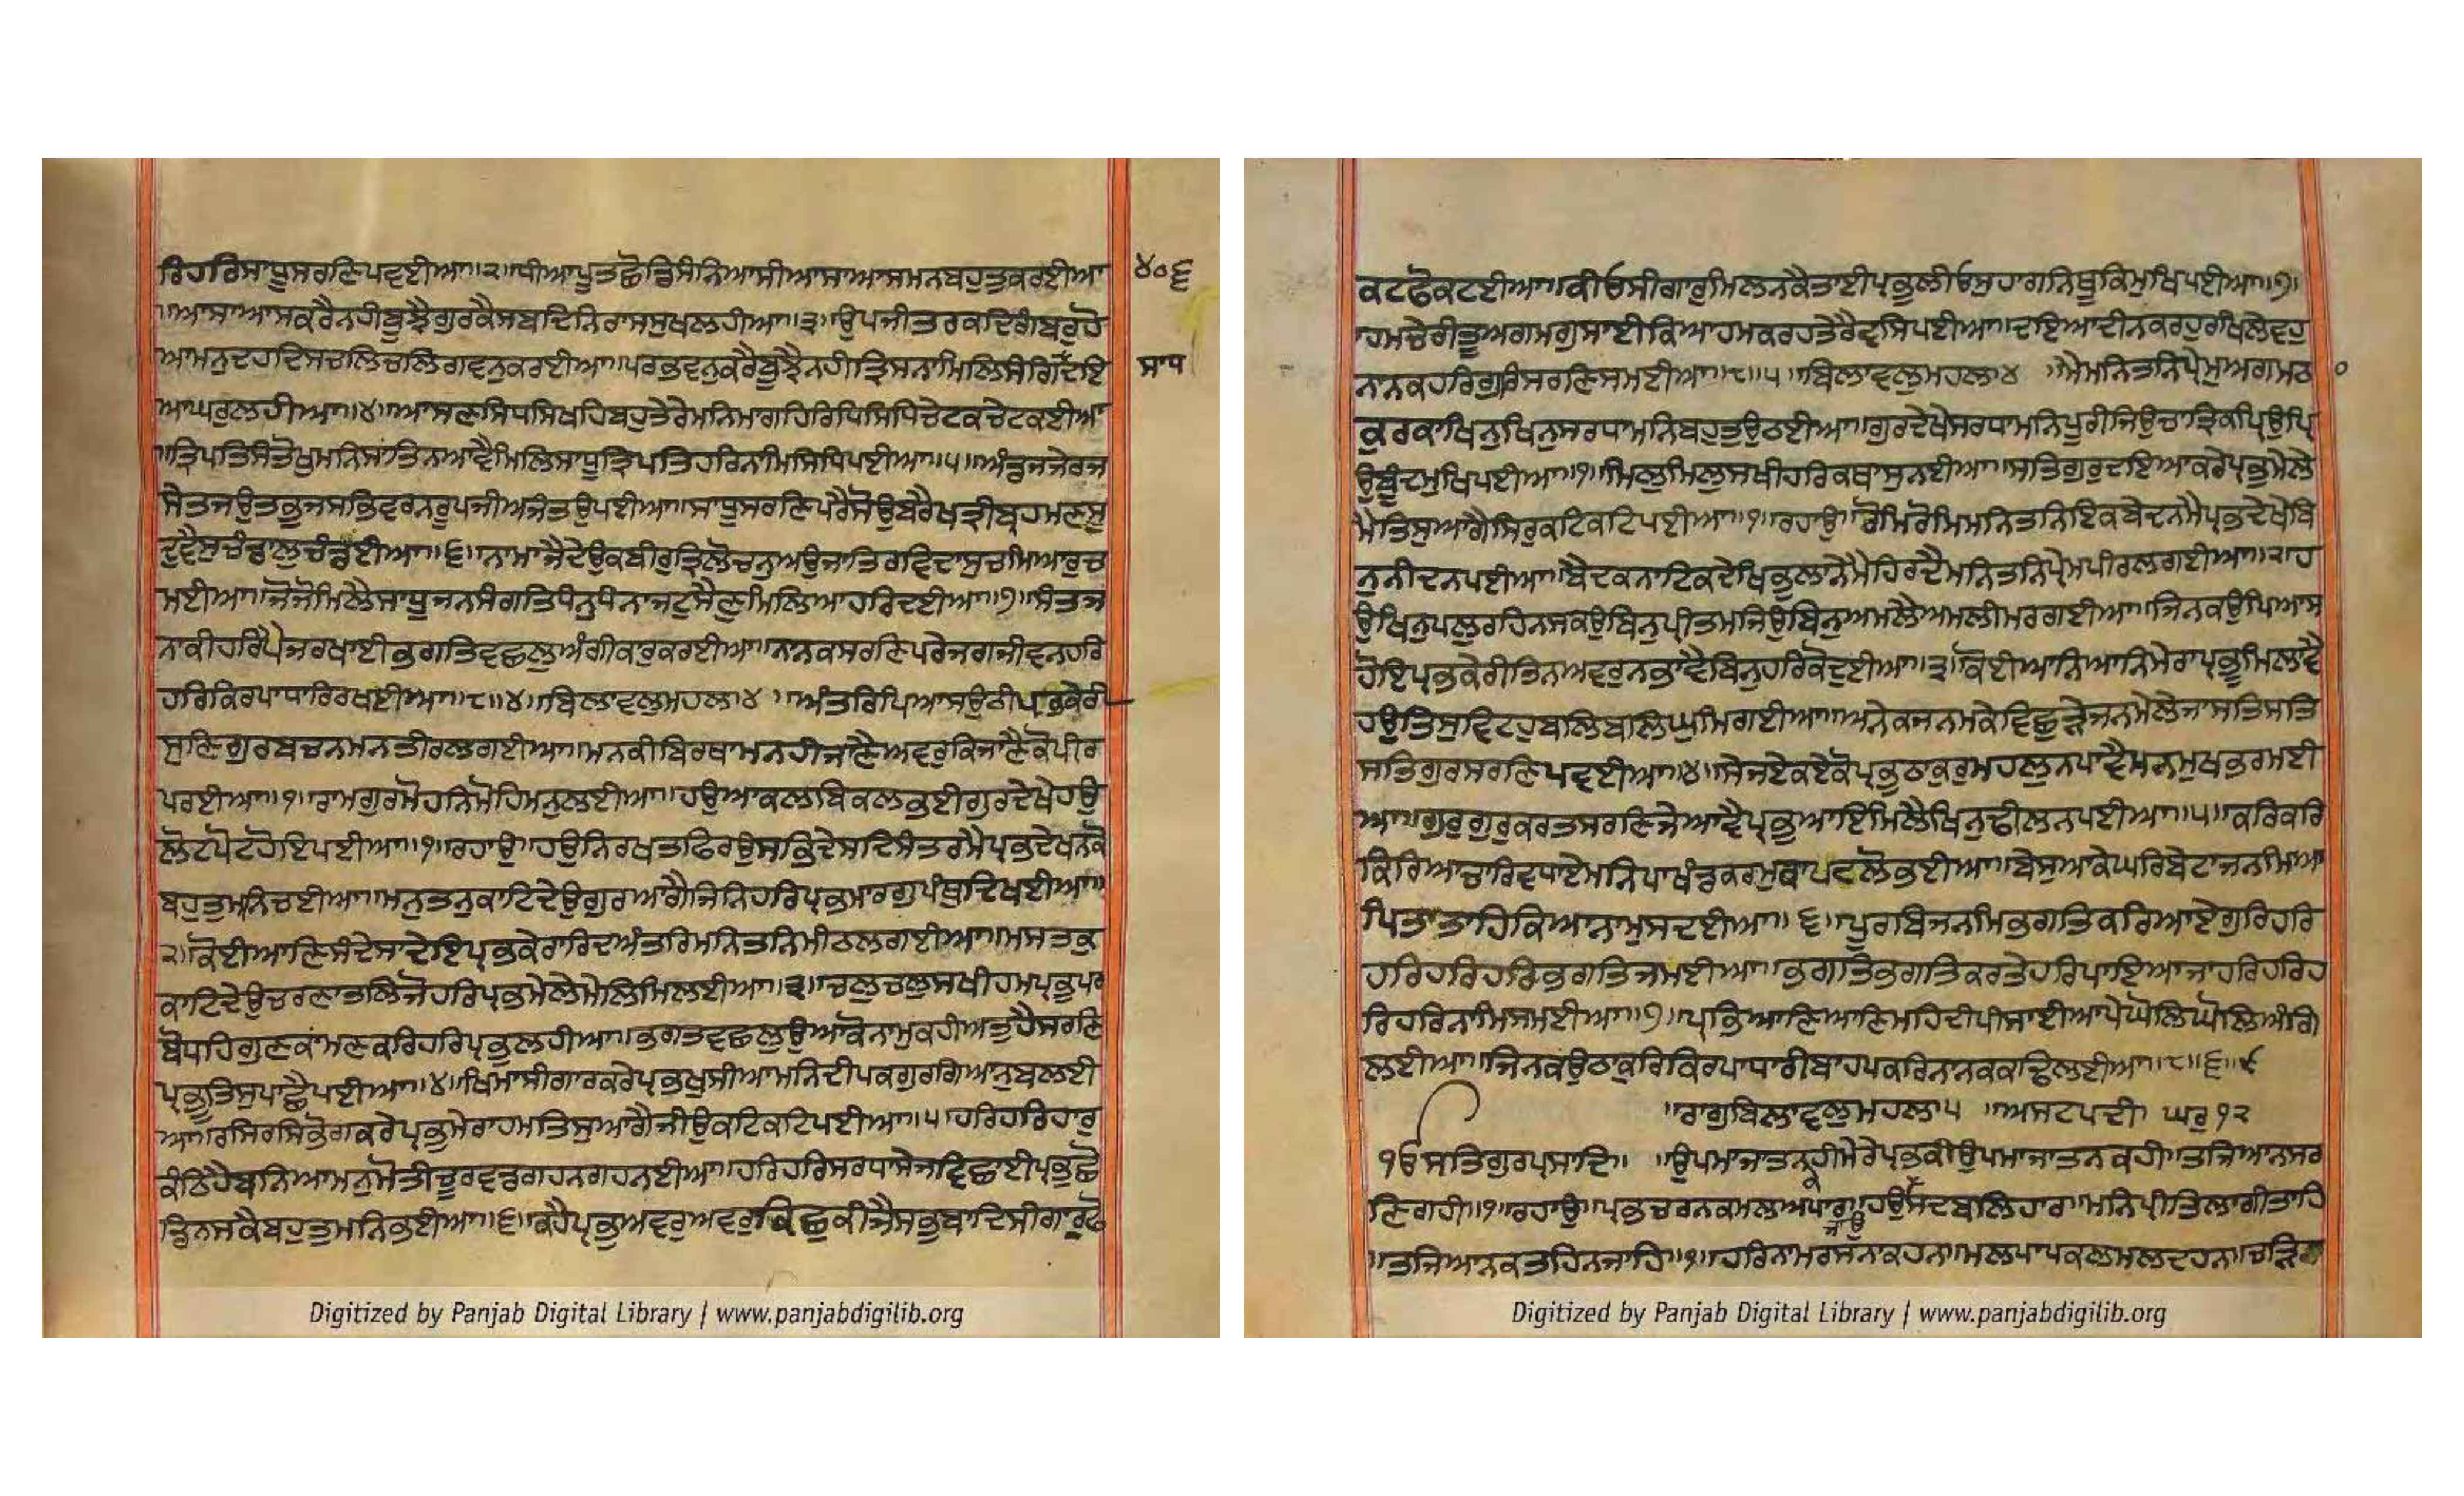 ਰਿਹਰਿਸਾਧੂਸਰਣਿਪਵਈਆ॥੨॥ਧੀਆਪੂਤਛੋਡਿਸੰਨਿਆਸੀਆਸਾਆਸਮਨਬਹੁਤੁਕਰਈਆ
੪੦੬
॥ਆਸਾਆਸਕਰੈਨਹੀਬੂਝੈਗੁਰਕੈਸਬਦਿਨਿਰਾਸਸੁਖਲਹੀਆ॥੩॥ਉਪਜੀਤਰਕਦਿਗੰਬਰੁਹੋ
ਆਮਨੁਦਹਦਿਸਚਲਿਚਲਿਗਵਨੁਕਰਈਆ॥ਪਰਭਵਨੁਕਰੈਬੂਝੈਨਹੀਤ੍ਰਿਸਨਾਮਿਲਿਸੰਗਿਦਇ
ਸਾਧ
ਆਘਰੁਲਹੀਆ॥੪॥ਆਸਣਸਿਧਸਿਖਹਿਬਹੁਤੇਰੇਮਨਿਮਾਗਹਿਰਿਧਿਸਿਧਿਚੇਟਕਚੇਟਕਈਆ
॥ਤ੍ਰਿਪਤਿਸੰਤੋਖੁਮਨਿਸਾਂਤਿਨਆਵੈਮਿਲਿਸਾਧੂਤ੍ਰਿਪਤਿਹਰਿਨਾਮਿਸਿਧਿਪਈਆ॥੫॥ਅੰਡਜਜੇਰਜ
ਸੇਤਜਉਤਭੁਜਸਭਿਵਰਨਰੂਪਜੀਅਜੰਤਉਪਈਆ॥ਸਾਧੂਸਰਣਿਪਰੈਸੋਉਬਰੈਖਤ੍ਰੀਬ੍ਰਹਮਣਸੂ
ਦੁਵੈਸੁਚੰਡਾਲੁਚੰਡਈਆ॥੬॥ਨਾਮਾਜੈਦੇਉਕਬੀਰੁਤ੍ਰਿਲੋਚਨੁਅਉਜਾਤਿਰਵਿਦਾਸੁਚਮਿਆਰੁਚ
ਮਈਆ॥ਜੋਜੋਮਿਲੈਸਾਧੂਜਨਸੰਗਤਿਧੰਨੁਧੰਨਾਜਟੁਸੈਣੁਮਿਲਿਆਹਰਿਦਈਆ॥੭॥ਸੰਤਜ
ਨਾਕੀਹਰਿਪੈਜਰਖਾਈਭਗਤਿਵਛਲੁਅੰਗੀਕਾਰੁਕਰਈਆ॥ਨਾਨਕਸਰਣਿਪਰੇਜਗਜੀਵਨਹਰਿ
ਹਰਿਕਿਰਪਾਧਾਰਿਰਖਈਆ॥੮॥੪॥ਬਿਲਾਵਲੁਮਹਲਾ੪ ॥ਅੰਤਰਿਪਿਆਸਉਠੀਪ੍ਰਭਕੇਰੀ
ਸੁਣਿਗੁਰਬਚਨਮਨਤੀਰਲਗਈਆ॥ਮਨਕੀਬਿਰਥਾਮਨਹੀਜਾਣੈਅਵਰੁਕਿਜਾਣੈਕੋਪੀਰ
ਪਰਈਆ॥੧॥ਰਾਮਗੁਰਮੋਹਨਿਮੋਹਿਮਨੁਲਈਆ॥ਹਉਆਕਲਬਿਕਲਭਈਗੁਰਦੇਖੇਹਉ
ਲੋਟਪੋਟਹੋਇਪਈਆ॥੧॥ਰਹਾਉ॥ਹਉਨਿਰਖਤਫਿਰਉਸਭਿਦੇਸਦਿਸੰਤਰਮੈਪ੍ਰਭਦੇਖਨਕੋ
ਬਹੁਤੁਮਨਿਚਈਆ॥ਮਨੁਤਨੁਕਾਟਿਦੇਉਗੁਰਆਗੈਜਿਨਿਹਰਿਪ੍ਰਭਮਾਰਗੁਪੰਥੁਦਿਖਈਆ॥
੨॥ਕੋਈਆਣਿਸੰਦੇਸਾਦੇਇਪ੍ਰਭਕੇਰਾਰਿਦਅੰਤਰਿਮਨਿਤਨਿਮੀਠਲਗਈਆ॥ਮਸਤਕੁ
ਕਾਟਿਦੇਉਚਰਣਾਤਲਿਜੋਹਰਿਪ੍ਰਭੁਮੇਲੇਮੇਲਿਮਿਲਈਆ॥੩॥ਚਲੁਚਲੁਸਖੀਹਮਪ੍ਰਭੁਪਰ
ਬੋਧਹਿਗੁਣਕਾਮਣਕਰਿਹਰਿਪ੍ਰਭੁਲਹੀਆ॥ਭਗਤਵਛਲੁਉਆਕੋਨਾਮੁਕਹੀਅਤੁਹੈਸਰਣਿ
ਪ੍ਰਭੂਤਿਸੁਪਾਛੈਪਈਆ॥੪॥ਖਿਮਾਸੀਗਾਰਕਰੇਪ੍ਰਭਖੁਸੀਆਮਨਿਦੀਪਕਗੁਰਗਿਆਨੁਬਲਈ
ਆ॥ਰਸਿਰਸਿਭੋਗਕਰੇਪ੍ਰਭੁਮੇਰਾਹਮਤਿਸੁਆਗੈਜੀਉਕਟਿਕਟਿਪਈਆ॥੫॥ਹਰਿਹਰਿਹਾਰੁ
ਕੰਠਿਹੈਬਨਿਆਮਨੁਮੋਤੀਚੂਰਵਡਗਹਨਗਹਨਈਆ॥ਹਰਿਹਰਿਸਰਧਾਸੇਜਵਿਛਾਈਪ੍ਰਭੁਛੋ
ਡਿਨਸਕੈਬਹੁਤੁਮਨਿਭਈਆ॥੬॥ਕਹੈਪ੍ਰਭੁਅਵਰੁਅਵਰੁਕਿਛੁਕੀਜੈਸਭੁਬਾਦਿਸੀਗਾਰੁਫੋ
ਕਟਫੋਕਟਈਆ॥ਕੀਓਸੀਗਾਰੁਮਿਲਨਕੈਤਾਈਪ੍ਰਭੁਲੀਓਸੁਹਾਗਨਿਥੂਕਿਮੁਖਿਪਈਆ॥੭॥
ਹਮਚੇਰੀਤੂਅਗਮਗੁਸਾਈਕਿਆਹਮਕਰਹਤੇਰੈਵਸਿਪਈਆ॥ਦਇਆਦੀਨਕਰਹੁਰਖਿਲੇਵਹੁ
ਨਾਨਕਹਰਿਗੁਰਿਸਰਣਿਸਮਈਆ॥੮॥੫॥ਬਿਲਾਵਲੁਮਹਲਾ੪ ॥ਮੈਮਨਿਤਨਿਪ੍ਰੇਮੁਅਗਮਠ
੦
ਕੁਰਕਾਖਿਨੁਖਿਨੁਸਰਧਾਮਨਿਬਹੁਤੁਉਠਈਆ॥ਗੁਰਦੇਖੇਸਰਧਾਮਨਿਪੂਰੀਜਿਉਚਾਤ੍ਰਿਕਪ੍ਰਿਉਪ੍ਰਿ
ਉਬੂੰਦਮੁਖਿਪਈਆ॥੧॥ਮਿਲੁਮਿਲੁਸਖੀਹਰਿਕਥਾਸੁਨਈਆ॥ਸਤਿਗੁਰੁਦਇਆਕਰੇਪ੍ਰਭੁਮੇਲੇ
ਮੈਤਿਸੁਆਗੈਸਿਰੁਕਟਿਕਟਿਪਈਆ॥੧॥ਰਹਾਉ॥ਰੋਮਿਰੋਮਿਮਨਿਤਨਿਇਕਬੇਦਨਮੈਪ੍ਰਭਦੇਖੇਬਿ
ਨੁਨੀਦਨਪਈਆ॥ਬੈਦਕਨਾਟਿਕਦੇਖਿਭੁਲਾਨੇਮੈਹਿਰਦੈਮਨਿਤਨਿਪ੍ਰੇਮਪੀਰਲਗਈਆ॥੨॥ਹ
ਉਖਿਨੁਪਲੁਰਹਿਨਸਕਉਬਿਨੁਪ੍ਰੀਤਮਜਿਉਬਿਨੁਅਮਲੈਅਮਲੀਮਰਗਈਆ॥ਜਿਨਕਉਪਿਆਸ
ਹੋਇਪ੍ਰਭਕੇਰੀਤਿਨਅਵਰੁਨਭਾਵੈਬਿਨੁਹਰਿਕੋਦੁਈਆ॥੩॥ਕੋਈਆਨਿਆਨਿਮੇਰਾਪ੍ਰਭੂਮਿਲਾਵੈ
ਹਉਤਿਸੁਵਿਟਹੁਬਲਿਬਲਿਘੁਮਿਗਈਆ॥ਅਨੇਕਜਨਮਕੇਵਿਛੁੜੇਜਨਮੇਲੇਜਾਸਤਿਸਤਿ
ਸਤਿਗੁਰਸਰਣਿਪਵਈਆ॥੪॥ਸੇਜਏਕਏਕੋਪ੍ਰਭੁਠਾਕੁਰੁਮਹਲੁਨਪਾਵੈਮਨਮੁਖਭਰਮਈ
ਆ॥ਗੁਰੁਗੁਰੁਕਰਤਸਰਣਿਜੇਆਵੈਪ੍ਰਭੁਆਇਮਿਲੈਖਿਨੁਢੀਲਨਪਈਆ॥੫॥ਕਰਿਕਰਿ
ਕਿਰਿਆਚਾਰਿਵਧਾਏਮਨਿਪਾਖੰਡਕਰਮੁਕਪਟਲੋਭਈਆ॥ਬੇਸੁਆਕੇਘਰਿਬੇਟਾਜਨਮਿਆ
ਪਿਤਾਤਾਹਿਕਿਆਨਾਮੁਸਦਈਆ॥੬॥ਪੂਰਬਿਜਨਮਿਭਗਤਿਕਰਿਆਏਗੁਰਿਹਰਿ
ਹਰਿਹਰਿਹਰਿਭਗਤਿਜਮਈਆ॥ਭਗਤਿਭਗਤਿਕਰਤੇਹਰਿਪਾਇਆਜਾਹਰਿਹਰਿਹ
ਰਿਹਰਿਨਾਮਿਸਮਈਆ॥੭॥ਪ੍ਰਭਿਆਣਿਆਣਿਮਹਿੰਦੀਪੀਸਾਈਆਪੇਘੋਲਿਘੋਲਿਅੰਗਿ
ਲਈਆ॥ਜਿਨਕਉਠਾਕੁਰਿਕਿਰਪਾਧਾਰੀਬਾਹਪਕਰਿਨਾਨਕਕਢਿਲਈਆ॥੮॥੬॥੯
॥ਰਾਗੁਬਿਲਾਵਲੁਮਹਲਾ੫ ॥ਅਸਟਪਦੀ ਘਰੁ੧੨
ੴਸਤਿਗੁਰਪ੍ਰਸਾਦਿ॥ ॥ਉਪਮਾਜਾਤਨਹੀਮੇਰੇਪ੍ਰਭਕੀਉਪਮਾਜਾਤਨਕਹੀ॥ਤਜਿਆਨਸਰ
ਣਿਗਹੀ॥੧॥ਰਹਾਉ॥ਪ੍ਰਭਚਰਨਕਮਲਅਪਾਰ॥ਹਉਸਦਬਲਿਹਾਰ॥ਮਨਿਪ੍ਰੀਤਿਲਾਗੀਤਾਹਿ
॥ਤਜਿਆਨਕਤਹਿਨਜਾਹਿ॥੧॥ਹਰਿਨਾਮਰਸਨਾਕਹਨ॥ਮਲਪਾਪਕਲਮਲਦਹਨ॥ਚੜਿਨ
Digitized by Panjab Digital Library | www.panjabdigilib.org
Digitized by Panjab Digital Library | www.panjabdigilib.org